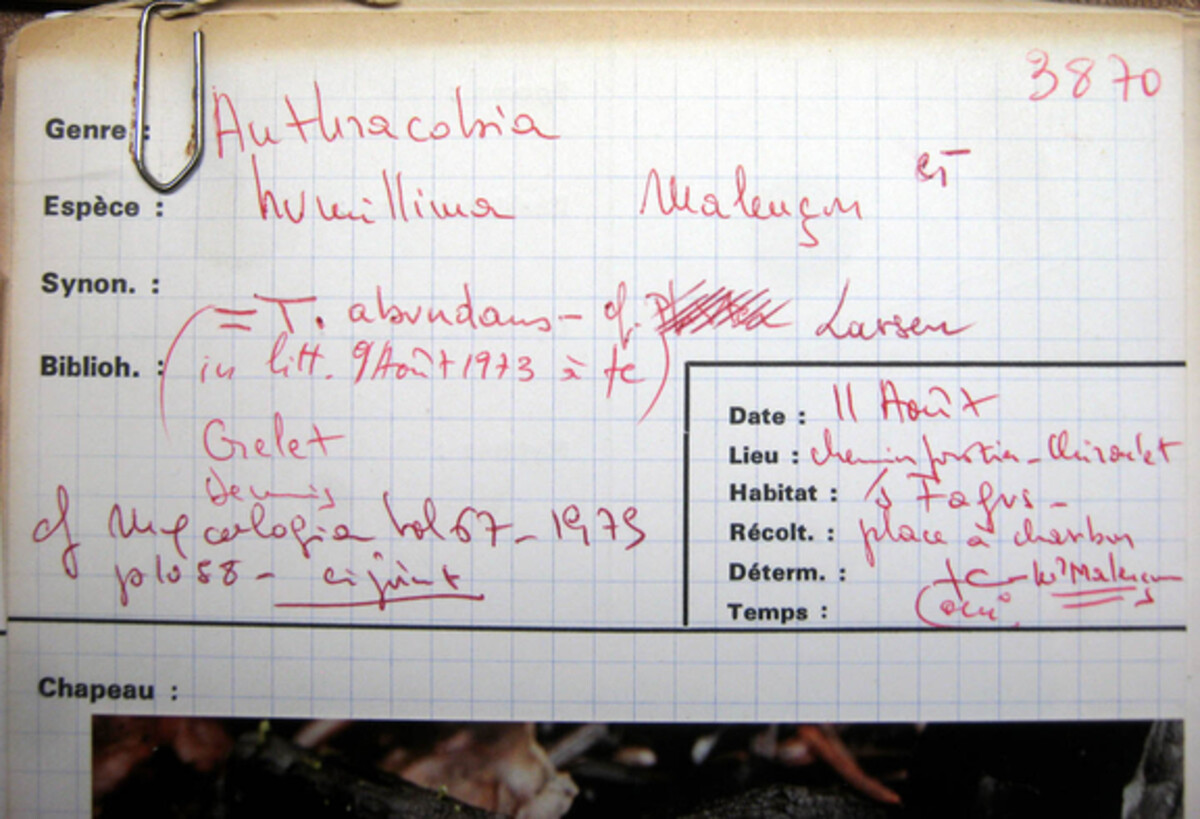 3870
Genre : Anthracobia
Espèce : humillima Malençon
Synon. :
= T. abundans - cf. Larsen
Biblioh. : in litt. 9 Août 1973 à
Grelet
Dennis
cf Mycologia vol 67 - 1975
p 1058 - ci joint
Date : 11 Août
Lieu : chemin
Habitat : Fagus -
Récolt. : place à charbon
Déterm. : Malençon
Temps :
Chapeau :